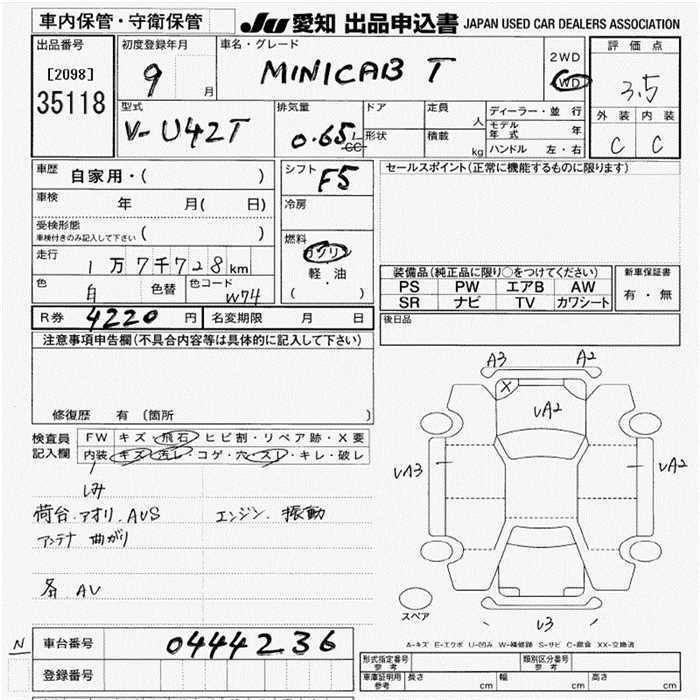 車内保管・守衛保管
JU 愛知 出品申込書 JAPAN USED CAR DEALERS ASSOCIATION
出品番号
[2098]
35118
初度登録年月
9 月
車名・グレード
MINICAB T
2WD
4WD
評価点
3.5
外装 内装
C C
型式
V- U42T
排気量
0.65 L
CC
ドア
形状
定員
人
積載
kg
ディーラー・並行
モデル年式 年
ハンドル 左・右
車歴
自家用・( )
車検
年 月( 日)
受検形態
車検付きのみ記入して下さい ( )
走行
1万7千728km
色 白 色替
色コード W74
シフト
F5
冷房
燃料
ガソリン
軽・油
( )
セールスポイント(正常に機能するものに限ります)
装備品(純正品に限り○をつけてください)
PS PW エアB AW
SR ナビ TV カワシート
新車保証書
有・無
R券 4220 円 名変期限 月 日
後日品
注意事項申告欄(不具合内容等は具体的に記入して下さい)
修復歴 有 〔箇所 〕
検査員記入欄
FW キズ・飛石・ヒビ割・リペア跡・X要
内装 キズ・汚レ・コゲ・穴・スレ・キレ・破レ
しみ
荷台.アオリ.AUS エンジン.振動
アンテナ 曲がり
各 AU
A3 A2
X
UA2
UA3
UA2
スペア
U3
A-キズ E-エクボ U-凹み W-補修跡 S-サビ C-腐食 XX-交換済
N 車台番号 0444236
登録番号
形式指定番号 参考
類別区分番号 参考
車庫証明用 参考 長さ cm 幅 cm 高さ cm